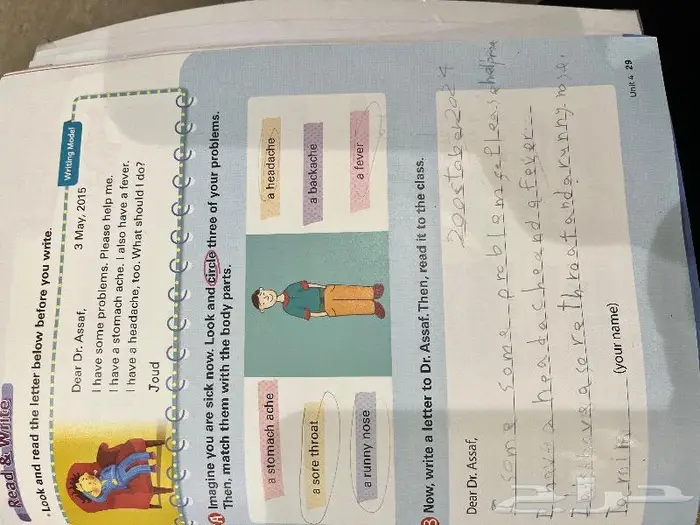 Read & Write
Look and read the letter below before you write.
Writing Model
Dear Dr. Assaf,
3 May, 2015
I have some problems. Please help me.
I have a stomach ache. I also have a fever.
I have a headache, too. What should I do?
Joud
A Imagine you are sick now. Look and circle three of your problems.
Then, match them with the body parts.
a stomach ache
a headache
a sore throat
a backache
a runny nose
a fever
B Now, write a letter to Dr. Assaf. Then, read it to the class.
Dear Dr. Assaf,
some some problemse Please help me
I have a headache and a fever
have a sore throat and a runny nose.
(your name)
Unit 4 29
حراج